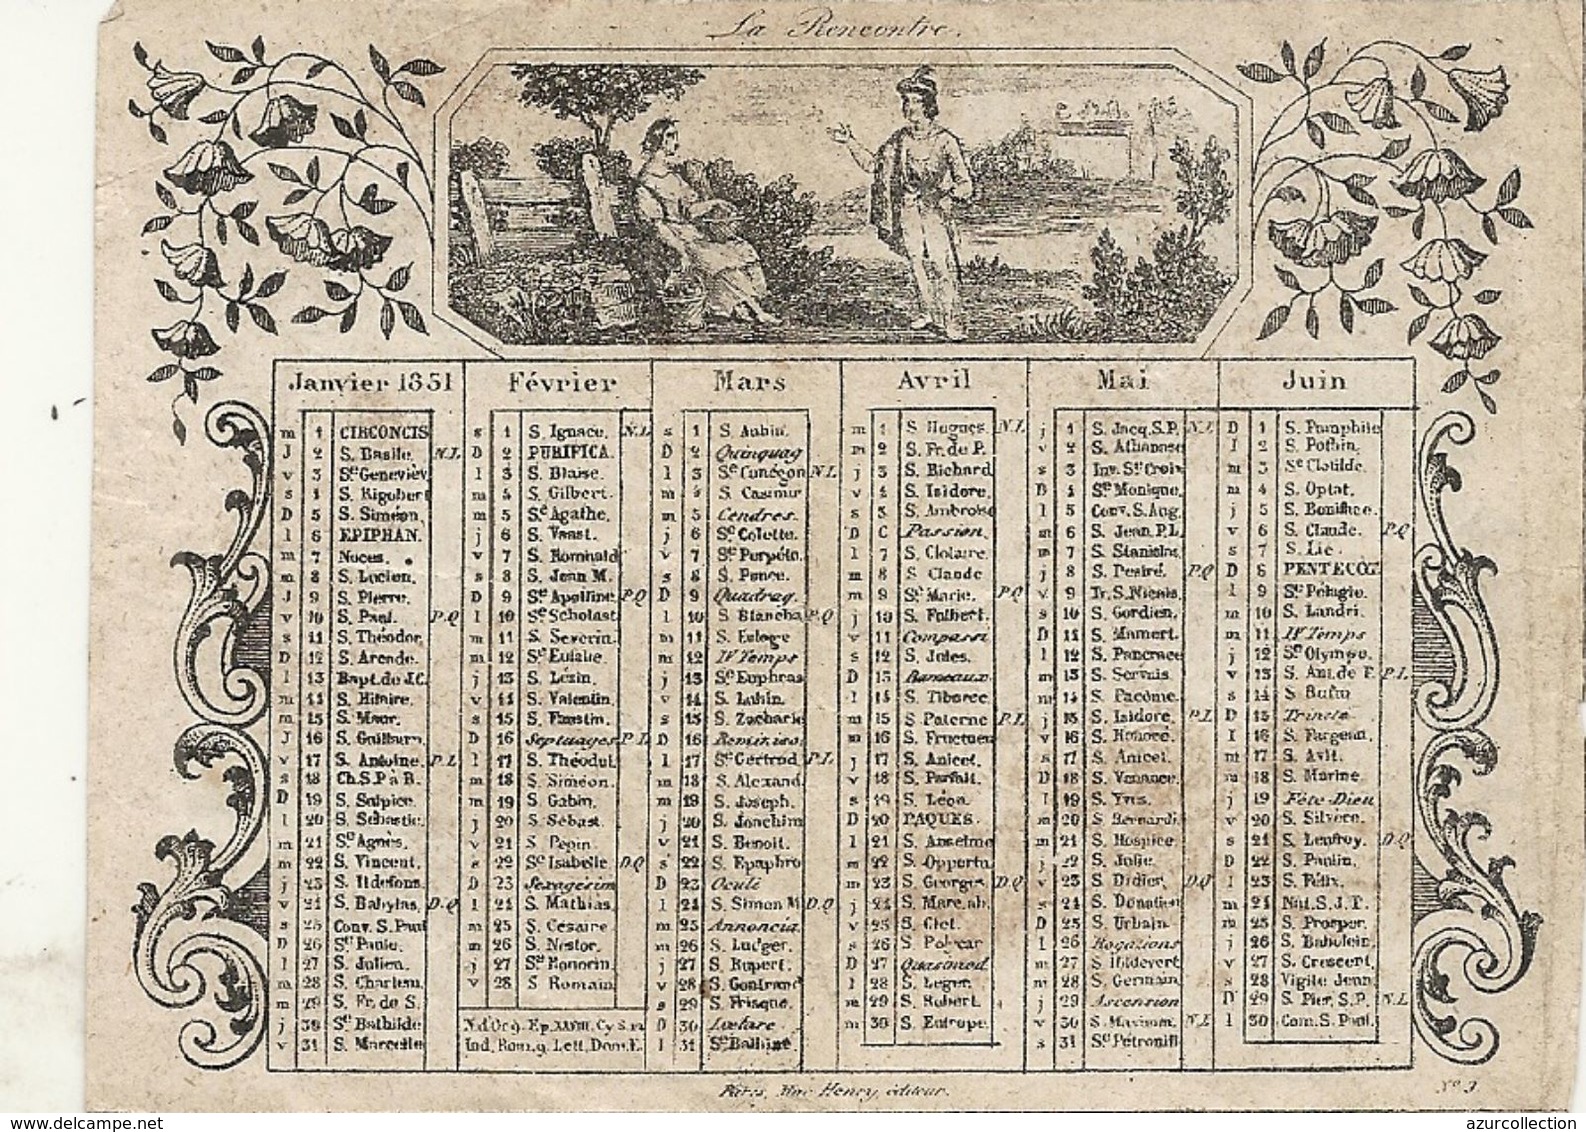 La Rencontre.
Janvier 1851
m 1 CIRCONCIS
J 2 S. Basile. N.L
v 3 Se Geneviev.
s 4 S. Rigobert
D 5 S. Siméon.
l 6 EPIPHAN.
m 7 Noces.
m 8 S. Lucien.
J 9 S. Pierre.
v 10 S. Paul. P.Q
s 11 S. Théodor.
D 12 S. Arcade.
l 13 Bapt. de J.C.
m 14 S. Hilaire.
m 15 S. Maur.
J 16 S. Guillaum.
v 17 S. Antoine. P.L
s 18 Ch.S.P à R.
D 19 S. Sulpice.
l 20 S. Sébastie.
m 21 Se Agnès.
m 22 S. Vincent.
j 23 S. Ildefons.
v 24 S. Babylas. D.Q
s 25 Conv. S. Paul
D 26 Se Paule.
l 27 S. Julien.
m 28 S. Charlem.
m 29 S. Fr. de S.
j 30 Se Bathilde
v 31 S. Marcelle
Février
s 1 S. Ignace. N.L
D 2 PURIFICA.
l 3 S. Blaise.
m 4 S. Gilbert.
m 5 Se Agathe.
j 6 S. Vaast.
v 7 S. Romuald
s 8 S. Jean M.
D 9 Se Apolline. P.Q
l 10 Se Scholast.
m 11 S. Severin.
m 12 Se Eulalie.
j 13 S. Lézin.
v 14 S. Valentin.
s 15 S. Faustin.
D 16 Septuages. P.L
l 17 S. Théodul.
m 18 S. Siméon.
m 19 S. Gabin.
j 20 S. Sébast.
v 21 S. Pepin.
s 22 Se Isabelle. D.Q
D 23 Sexagésim
l 24 S. Mathias.
m 25 S. Césaire
m 26 S. Nestor.
j 27 Se Honorin.
v 28 S. Romain.
N.d'Or 9. Ep. XXVIII. Cy S. 12
Ind. Rom. 9. Lett. Dom. E.
Mars
s 1 S. Aubin.
D 2 Quinquag
l 3 Se Cunégon N.L
m 4 S. Casimir
m 5 Cendres.
j 6 Se Colette.
v 7 Se Perpétu.
s 8 S. Ponce.
D 9 Quadrag.
l 10 S. Blancha P.Q
m 11 S. Euloge
m 12 IV Temps
j 13 Se Euphras
v 14 S. Lubin.
s 15 S. Zacharie
D 16 Reminisc.
l 17 Se Gertrud P.L
m 18 S. Alexand.
m 19 S. Joseph.
j 20 S. Joachim
v 21 S. Benoit.
s 22 S. Epaphro
D 23 Oculi
l 24 S. Simon M D.Q
m 25 Annoncia.
m 26 S. Ludger.
j 27 S. Rupert.
v 28 S. Gontrand
s 29 S. Frisque.
D 30 Lœtare.
l 31 Se Balbine
Avril
m 1 S. Hugues. N.L
m 2 S. Fr. de P.
j 3 S. Richard
v 4 S. Isidore.
s 5 S. Ambroise
D 6 Passion.
l 7 S. Clotaire.
m 8 S. Claude
m 9 Se Marie. P.Q
j 10 S. Fulbert.
v 11 Compassi
s 12 S. Jules.
D 13 Rameaux.
l 14 S. Tiburce.
m 15 S. Paterne P.L
m 16 S. Fructueu
j 17 S. Anicet.
v 18 S. Parfait.
s 19 S. Léon.
D 20 PAQUES.
l 21 S. Anselme
m 22 S. Opportu.
m 23 S. Georges D.Q
j 24 S. Marc. ab.
v 25 S. Clet.
s 26 S. Polycar
D 27 Quasimod
l 28 S. Leger.
m 29 S. Robert
m 30 S. Eutrope.
Mai
j 1 S. Jacq. S.P. N.L
v 2 S. Athanase
s 3 Inv. Se Croix
D 4 Se Monique.
l 5 Conv. S. Aug.
m 6 S. Jean P.L
m 7 S. Stanislas.
j 8 S. Desiré. P.Q
v 9 Tr. S. Nicois.
s 10 S. Gordien.
D 11 S. Mamert.
l 12 S. Pancrace
m 13 S. Servais.
m 14 S. Pacôme.
j 15 S. Isidore. P.L
v 16 S. Honoré.
s 17 S. Anicet.
D 18 S. Venance.
l 19 S. Yves.
m 20 S. Bernardi.
m 21 S. Hospice.
j 22 S. Julie.
v 23 S. Didier. D.Q
s 24 S. Donatien
D 25 S. Urbain.
l 26 Rogations
m 27 S. Hildevert.
m 28 S. Germain.
j 29 Ascension
v 30 S. Maxium. N.L
s 31 Se Pétronill
Juin
D 1 S. Pamphile
l 2 S. Pothin.
m 3 Se Clotilde.
m 4 S. Optat.
j 5 S. Boniface.
v 6 S. Claude. P.Q
s 7 S. Lié.
D 8 PENTECÔT
l 9 Se Pélagie.
m 10 S. Landri.
m 11 IV Temps
j 12 Se Olympe.
v 13 S. Ant. de P. P.L
s 14 S. Rufin
D 15 Trinité
l 16 S. Fargeau.
m 17 S. Avit.
m 18 S. Marine.
j 19 Fête-Dieu
v 20 S. Silvère.
s 21 S. Leufroy. D.Q
D 22 S. Paulin.
l 23 S. Félix.
m 24 Nat. S. J. B.
m 25 S. Prosper.
j 26 S. Babolein.
v 27 S. Crescent.
s 28 Vigile Jeun.
D 29 S. Pier. S.P. N.L
l 30 Com. S. Paul.
Paris, Mme Henry, éditeur.
No 3.
azurcollection
www.delcampe.net